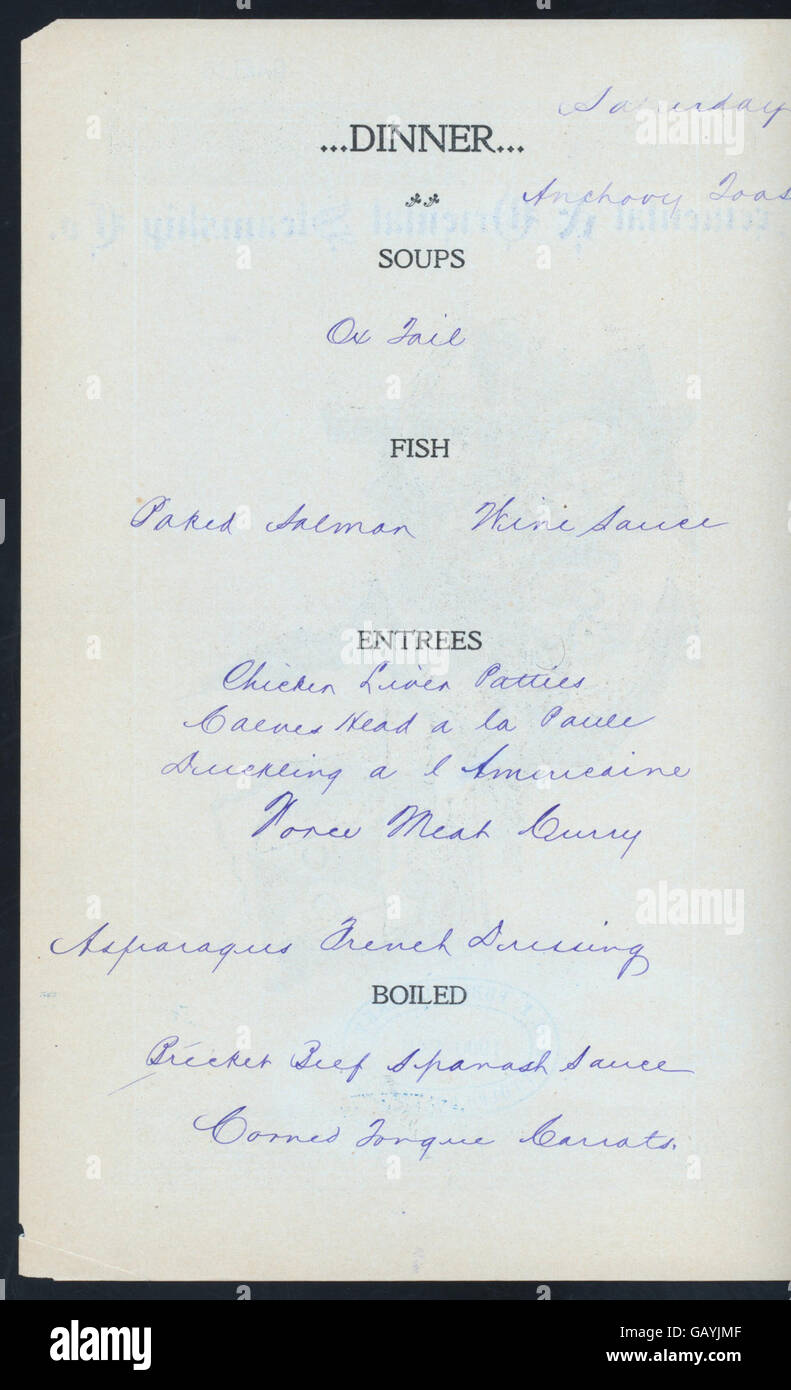 Saturday
...DINNER...
Anchovy Toas
SOUPS
Ox Tail
FISH
Baked Salmon Wine Sauce
ENTREES
Chicken Liver Patties
Calves Head a la Paule
Duckling a l Americaine
Force Meat Curry
Asparagus French Dressing
BOILED
Bricket Beef Spanash Sauce
Corned Tongue Carrats.
alamy
Image ID: GAYJMF
www.alamy.com